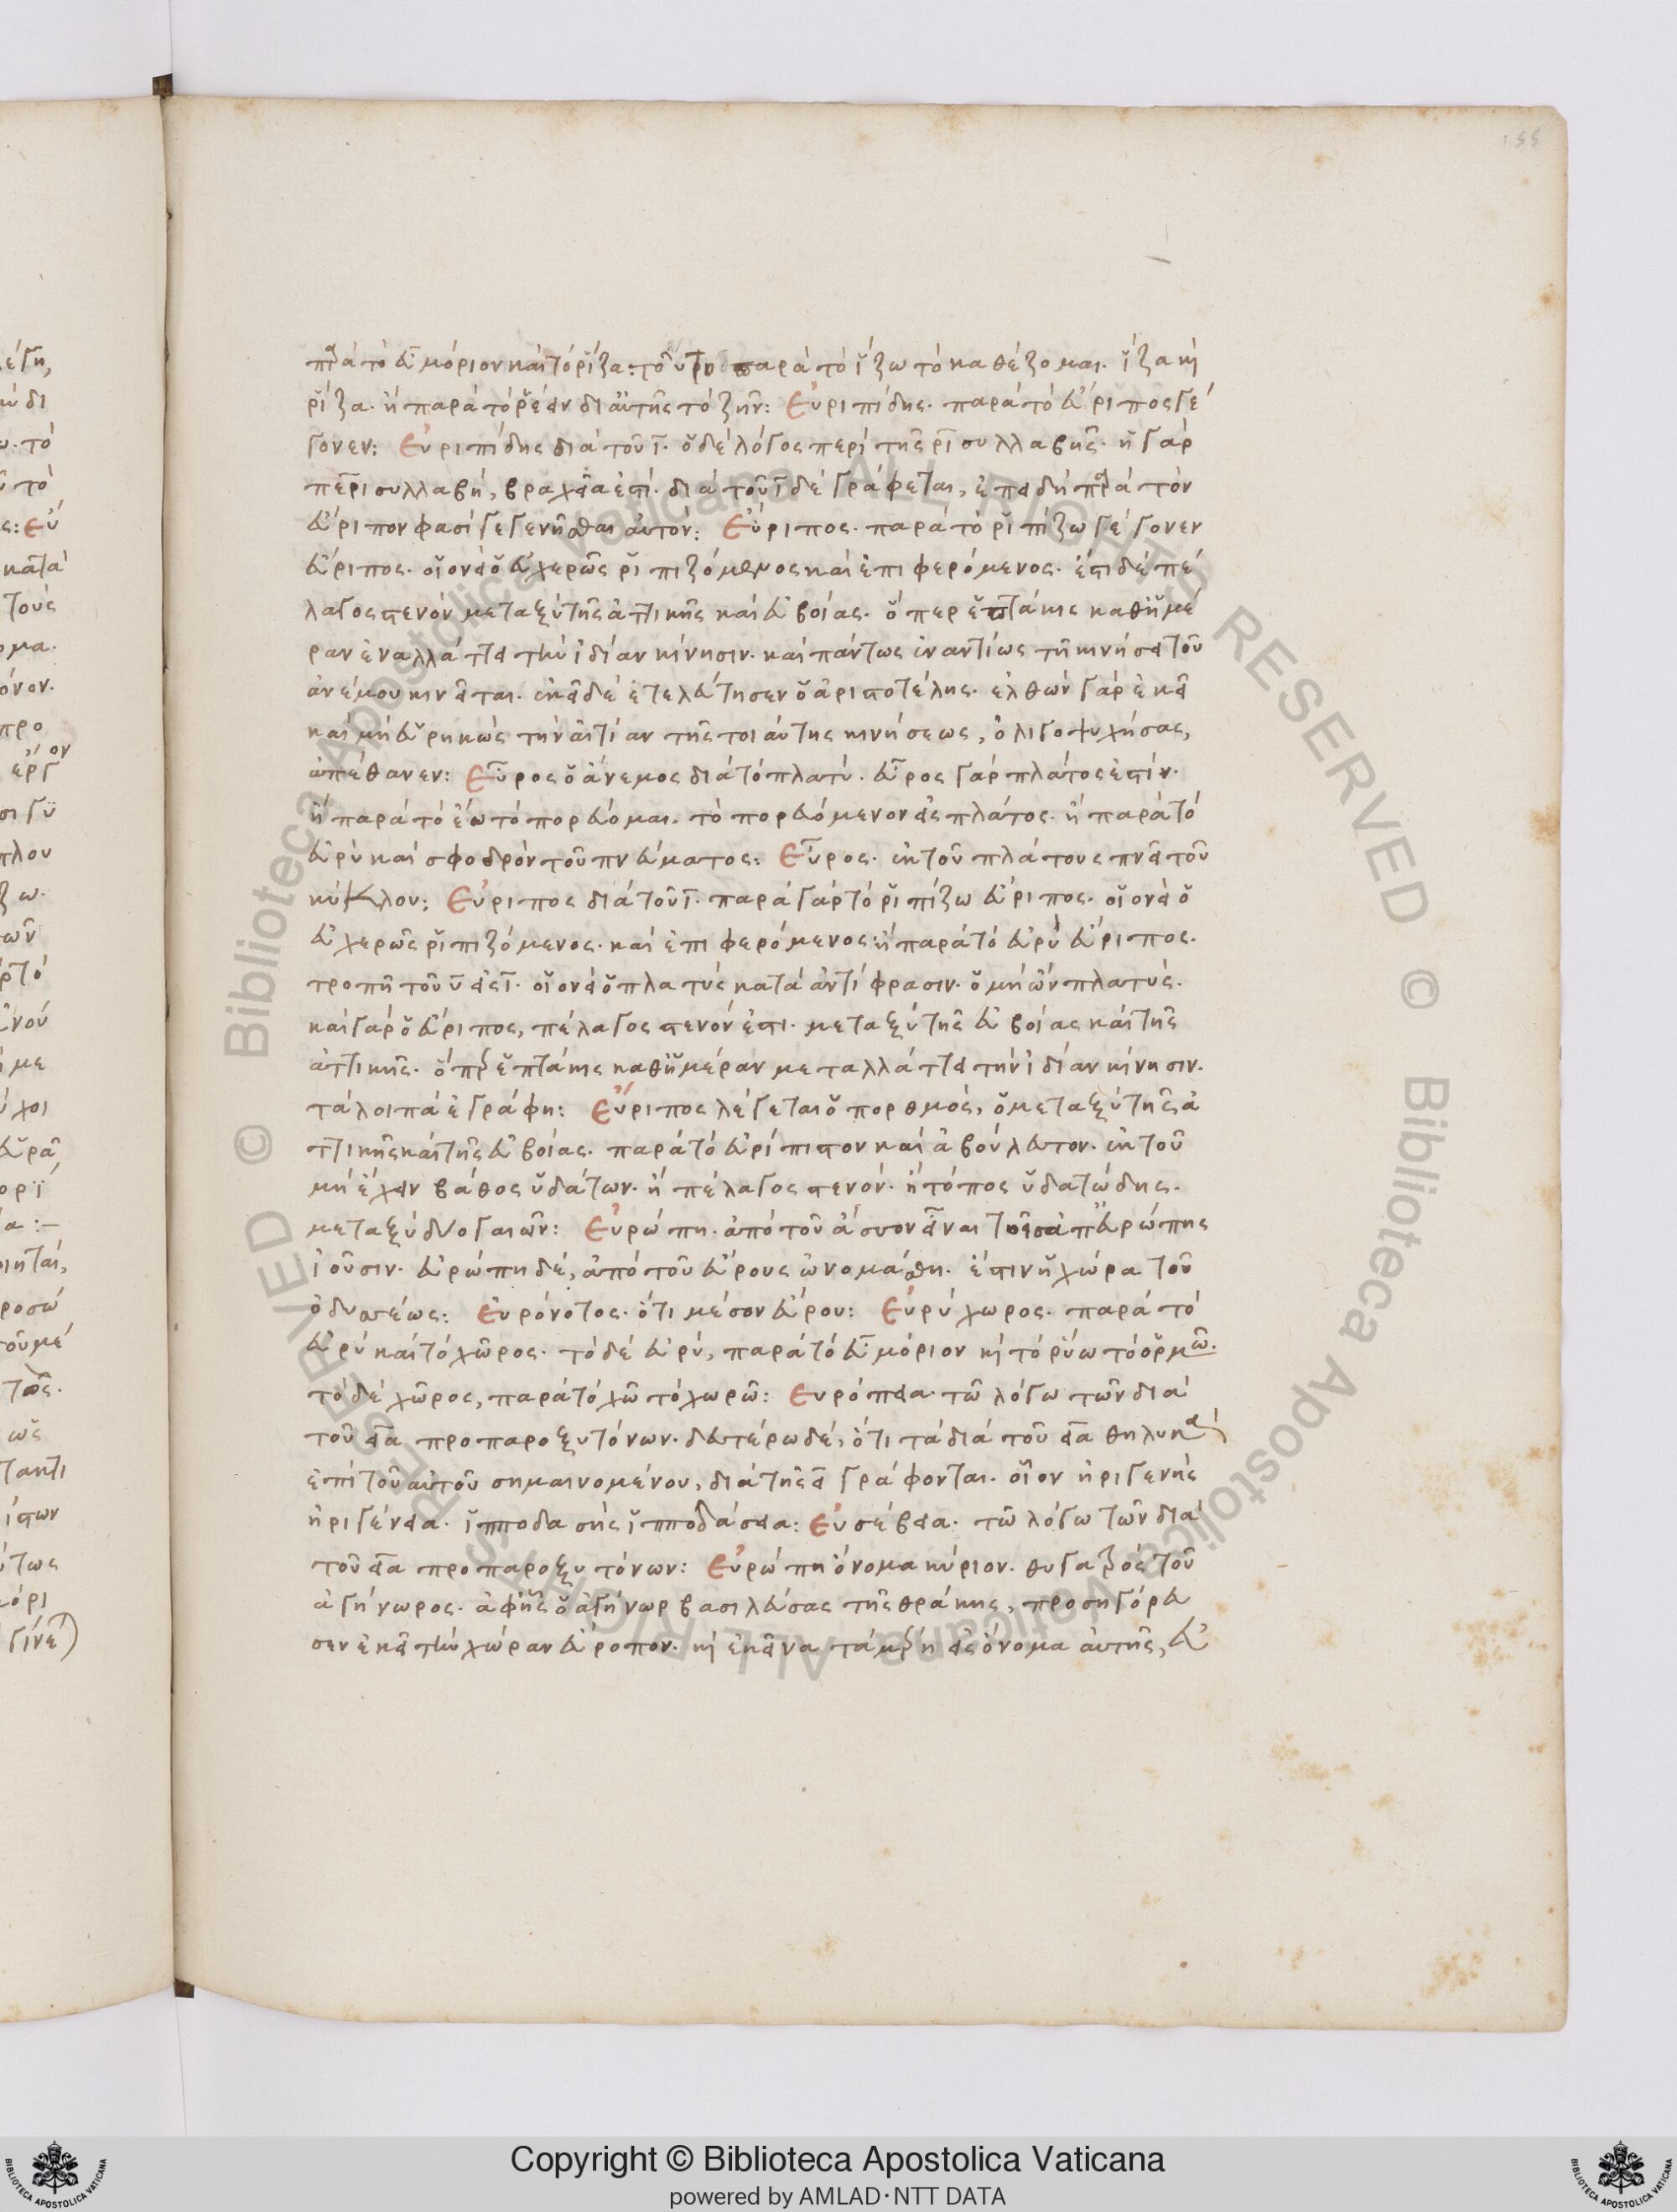 παρὰ τὸ εὖ μόριον καὶ τὸ ῥίζα: τοῦτο παρὰ τὸ ἵζω τὸ καθέζομαι. ἵζα καὶ
ῥίζα. ἢ παρὰ τὸ ῥέειν δι' αὐτῆς τὸ ζῆν: Εὐριπίδης. παρὰ τὸ εὔριπος γέ
γονεν: Εὐριπίδης διὰ τοῦ ῑ. ὁ δὲ λόγος περὶ τῆς ρῑ συλλαβῆς. ἡ γὰρ
περὶ συλλαβὴ, βραχεῖα ἐστί. διὰ τοῦ ῑ δὲ γράφεται, ἐπειδὴ παρὰ τὸν
εὔριπον φασὶ γεγενῆσθαι αὐτόν: Εὔριπος. παρὰ τὸ ῥιπίζω γέγονεν
εὔριπος. οἱονεὶ ὁ εὐχερῶς ῥιπιζόμενος καὶ ἐπιφερόμενος. ἔστι δὲ πέ
λαγος στενὸν μεταξὺ τῆς ἀττικῆς καὶ εὐβοίας. ὅπερ ἑπτάκις καθ' ἡμέ
ραν ἐναλλάττει τὴν ἰδίαν κίνησιν. καὶ πάντως ἐναντίως τῆ κινήσει τοῦ
ἀνέμου κινεῖται. ἐκεῖ δὲ ἐτελεύτησεν ὁ ἀριστοτέλης. ἐλθὼν γὰρ ἐκεῖ
καὶ μὴ εὑρηκὼς τὴν αἰτίαν τῆς τοιαύτης κινήσεως, ὀλιγοψυχήσας,
ἀπέθανεν: Εὖρος ὁ ἄνεμος διὰ τὸ πλατύ. εὖρος γὰρ πλάτος ἐστίν.
ἢ παρὰ τὸ ἕω τὸ πορεύομαι. τὸ πορευόμενον εἰς πλάτος. ἢ παρὰ τὸ
εὐρὺ καὶ σφοδρὸν τοῦ πνεύματος: Εὖρος. ἐκ τοῦ πλάτους πνεῖ τοῦ
κύκλου: Εὔριπος διὰ τοῦ ῑ. παρὰ γὰρ τὸ ῥιπίζω εὔριπος. οἱονεὶ ὁ
εὐχερῶς ῥιπιζόμενος. καὶ ἐπιφερόμενος: ἢ παρὰ τὸ εὐρὺ εὔριπος.
τροπῆ τοῦ ῡ εἰς ῑ. οἱονεὶ ὁ πλατὺς κατὰ ἀντίφρασιν. ὁ μὴ ὢν πλατύς.
καὶ γὰρ ὁ εὔριπος, πέλαγος στενόν ἐστι. μεταξὺ τῆς εὐβοίας καὶ τῆς
ἀττικῆς. ὅπερ ἑπτάκις καθ' ἡμέραν μεταλλάττει τὴν ἰδίαν κίνησιν.
τὰ λοιπὰ ἐγράφη: Εὔριπος λέγεται ὁ πορθμὸς, ὁ μεταξὺ τῆς ἀ
ττικῆς καὶ τῆς εὐβοίας. παρὰ τὸ εὐρίπιστον καὶ ἀβούλευτον. ἐκ τοῦ
μὴ ἔχειν βάθος ὑδάτων. ἢ πέλαγος στενόν. ἢ τόπος ὑδατώδης.
μεταξὺ δύο γαιῶν: Εὐρώπη. ἀπὸ τοῦ ἄσσυον εἶναι τοῖς ἀπ' εὐρώπης
ἰοῦσιν. εὐρώπη δὲ, ἀπὸ τοῦ εὔρους ὠνομάσθη. ἔστιν ἡ χώρα τοῦ
ὀδυσσέως: Εὐρόνοτος. ὅτι μέσον εὔρου: Εὐρύχωρος. παρὰ τὸ
εὐρὺ καὶ τὸ χῶρος. τὸ δὲ εὐρὺ, παρὰ τὸ εὖ μόριον καὶ τὸ ῥύω τὸ ὁρμῶ.
τὸ δὲ χῶρος, παρὰ τὸ χῶ τὸ χωρῶ: Ευρόπεια. τῶ λόγω τῶν διὰ
τοῦ εῖα προπαροξυτόνων. δευτέρω δὲ, ὅτι τὰ διὰ τοῦ εῖα θηλυκὰ
ἐπὶ τοῦ αὐτοῦ σημαινομένου, διὰ τῆς εῖ γράφονται. οἷον ἠριγενὴς
ἠριγένεια. ἱπποδασὴς ἱπποδάσεια: Εὐσέβεια. τῶ λόγω τῶν διὰ
τοῦ εῖα προπαροξυτόνων: Εὐρώπη ὄνομα κύριον. θυγατρὸς τοῦ
ἀγήνωρος. ἀφ' ἧς ὁ ἀγήνωρ βασιλεύσας τῆς θράκης, προσηγόρευ
σεν ἐκεῖ τὴν χώραν εὔροπον. καὶ ἐκεῖνα τὰ μέρη εἰς ὄνομα αὐτῆς, εὐ
Copyright © Biblioteca Apostolica Vaticana
powered by AMLAD·NTT DATA